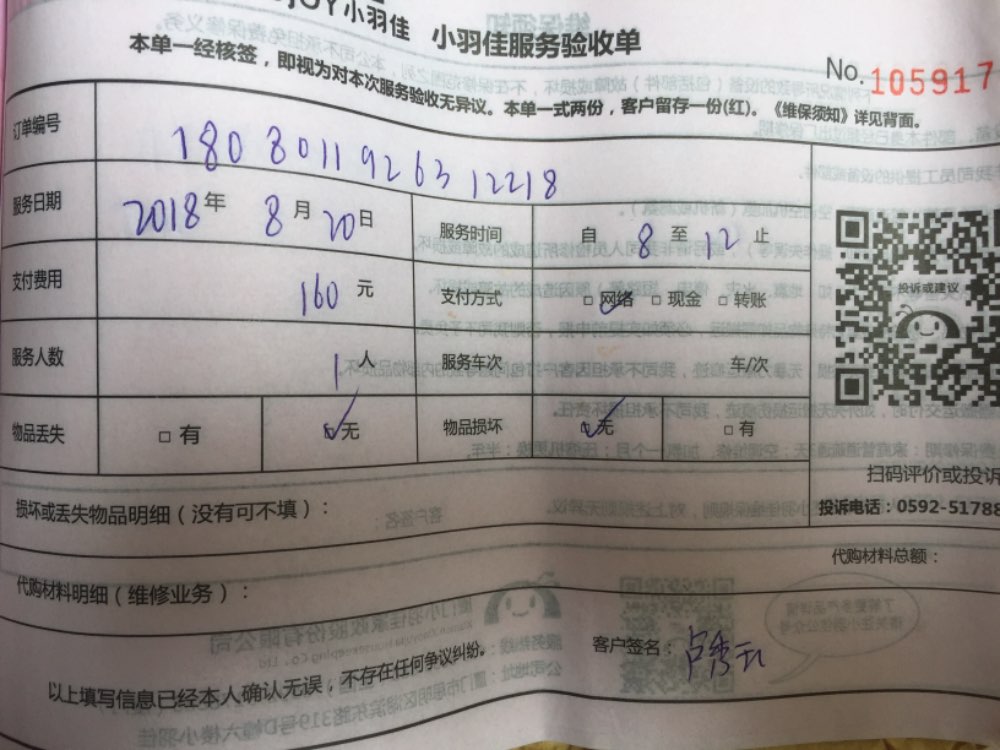 小羽佳 小羽佳服务验收单
No. 105917
本单一经核签，即视为对本次服务验收无异议。本单一式两份，客户留存一份(红)。《维保须知》详见背面。
订单编号 180801192631 2218
服务日期 2018年 8月 20日 服务时间 自 8 至 12 止
支付费用 160 元 支付方式 □网络 □现金 □转账
投诉或建议
服务人数 1 人 服务车次 车/次
物品丢失 □有 ☑无 物品损坏 ☑无 □有
扫码评价或投诉
损坏或丢失物品明细（没有可不填）：
投诉电话：0592-51788
代购材料总额：
代购材料明细（维修业务）：
客户签名：
以上填写信息已经本人确认无误，不存在任何争议纠纷。